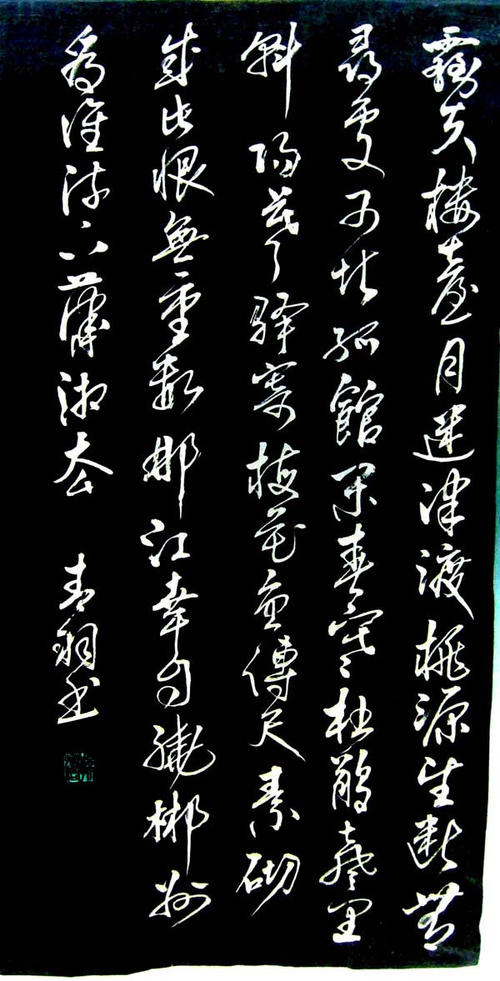 霧失樓臺月迷津渡桃源望断無
尋處可堪孤館閉春寒杜鵑聲里
斜陽暮驿寄梅花魚傳尺素砌
成此恨無重數郴江幸自繞郴州
為誰流下瀟湘去 青 书